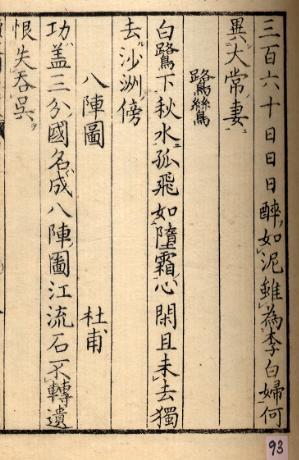 三百六十日日日醉如泥雖為李白婦何
異大常妻
鷺鷥
白鷺下秋水孤飛如墮霜心閑且未去獨
去沙洲傍
八陣圖 杜甫
功盖三分國名成八陣圖江流石不轉遺
恨失吞吴
93